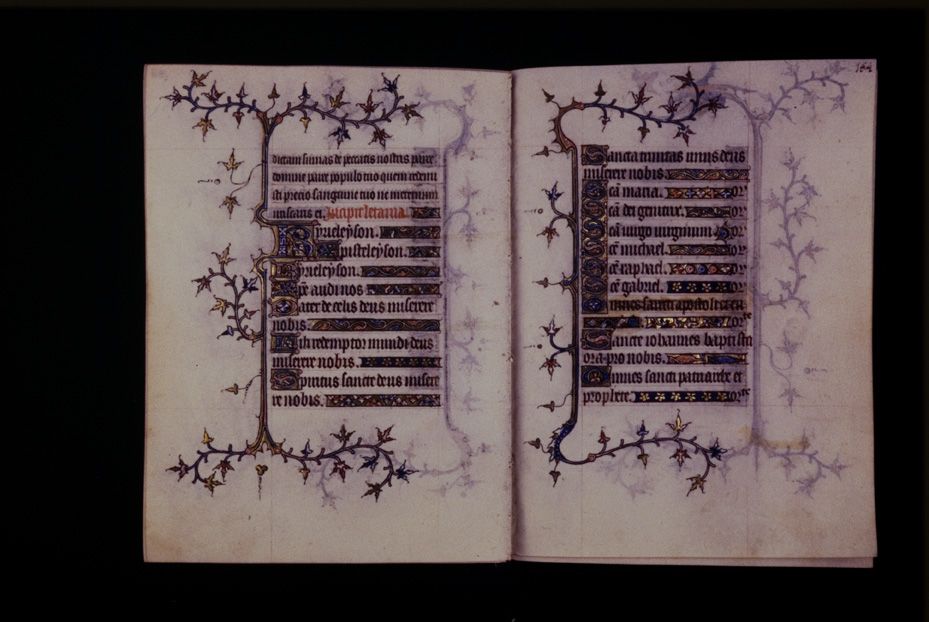 dicam animas de peccatis nostris parce
domine parce populo tuo quem redemi
sti precio sanguine tuo ne in eternum
irascaris ei. Incipit letania.
Kyrieleyson.
Xpisteleyson.
Kyrieleyson.
Xpe audi nos
Pater de celis deus miserere
nobis.
Fili redemptor mundi deus
miserere nobis.
Spiritus sancte deus misere
re nobis.
164
Sancta trinitas unus deus
miserere nobis.
Sca maria. or
Sca dei genitrix. or
Sca uirgo uirginum. or
Sce michael. or
Sce raphael. or
Sce gabriel. or
Omnes sancti
or
Sancte iohannes baptista
ora pro nobis.
Omnes sancti patriarche et
prophete. orte